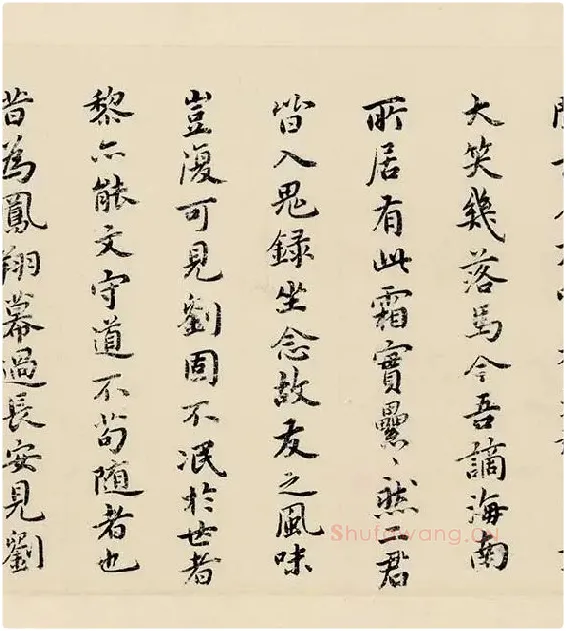 大笑幾落馬今吾謫海南
所居有此霜實纍〻然二君
皆入鬼録坐念故友之風味
豈復可見劉固不泯於世者
黎亦能文守道不苟隨者也
昔為鳳翔幕過長安見劉